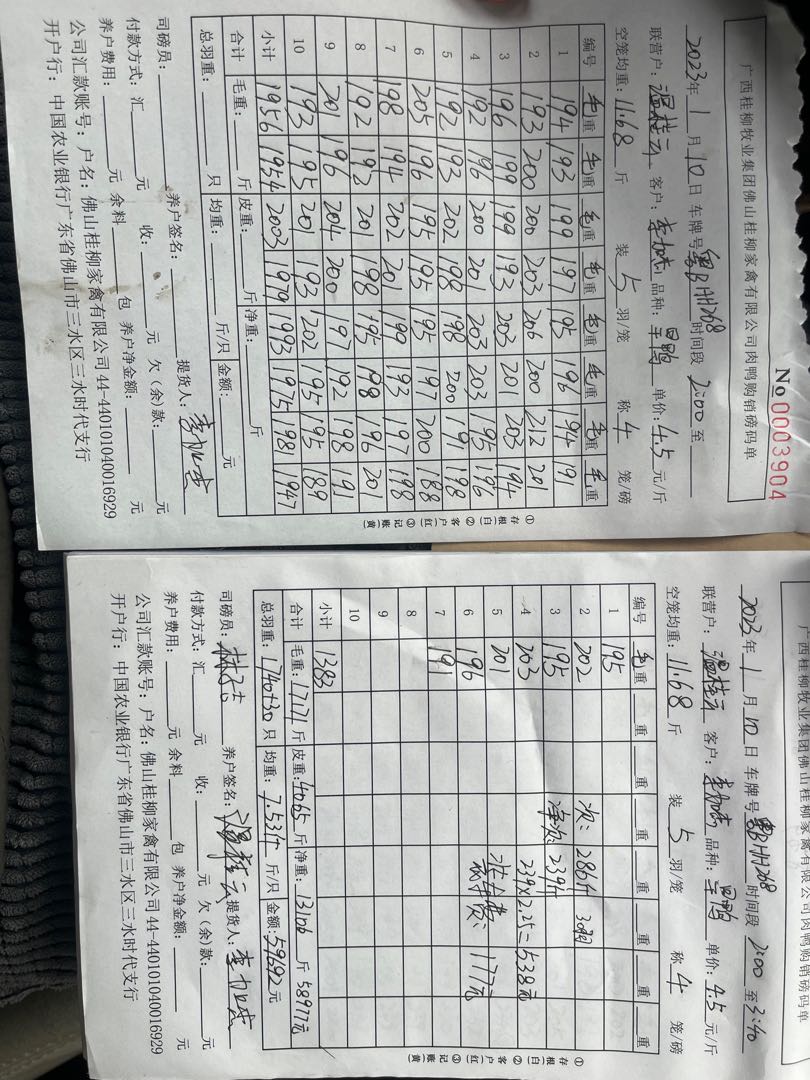 No 00003904
广西桂柳牧业集团佛山桂柳家禽有限公司肉鸭购销磅码单
2023年 1 月 10 日 车牌号 粤BHH268 时间段 2:00 至
联营户：温桂云 客户：李加杰 品种： 单价：4.5 元/斤
空笼均重：11.68 斤 装 5 羽/笼 称 4 笼/磅
编号 毛重 毛重 毛重 毛重 毛重 毛重 毛重 毛重
1 194 193 199 197 195 196 194 191
2 193 200 200 203 206 200 212 201
3 196 199 199 193 203 201 203 194
4 192 196 200 201 203 203 195 196
5 192 193 202 198 198 200 191 198
6 205 196 195 195 195 197 200 188
7 198 194 202 201 199 193 197 198
8 192 192 201 198 195 198 196 201
9 201 196 204 200 197 192 198 191
10 193 195 201 193 202 195 195 189
小计 1956 1954 2003 1979 1993 1975 1981 1947
合计 毛重： 斤 皮重： 斤 净重： 斤
总羽重： 只 均重： 斤/只 金额： 元
司磅员： 养户签名： 提货人：李加杰
付款方式：汇 元 收： 元 欠（余）款： 元
养户费用： 元 余料 包 养户净金额： 元
公司汇款账号：户名：佛山桂柳家禽有限公司44-440101040016929
开户行：中国农业银行广东省佛山市三水区三水时代支行
①存根（白） ②客户（红） ③记账（黄）
广西桂柳牧业集团佛山桂柳家禽有限公司肉鸭购销磅码单
2023年 1 月 10 日 车牌号 粤BHH268 时间段 2:00 至 3:40
联营户：温桂云 客户：李加杰 品种： 单价：4.5 元/斤
空笼均重：11.68 斤 装 5 羽/笼 称 4 笼/磅
编号 毛重 重 重 重 重 重 重 重
1 195
2 202 次：286斤 30只
3 195 净次：239斤
4 203 239×2.25=538元
5 201
6 196 177元
7 191
8
9
10
小计 1383
合计 毛重：17171斤 皮重：4065斤 净重：13106斤 58977元
总羽重：1740+30只 均重：7.53斤/只 金额：59692元
司磅员： 养户签名：温桂云 提货人：李加杰
付款方式：汇 元 收： 元 欠（余）款： 元
养户费用： 元 余料 包 养户净金额： 元
公司汇款账号：户名：佛山桂柳家禽有限公司44-440101040016929
开户行：中国农业银行广东省佛山市三水区三水时代支行
①存根（白） ②客户（红） ③记账（黄）